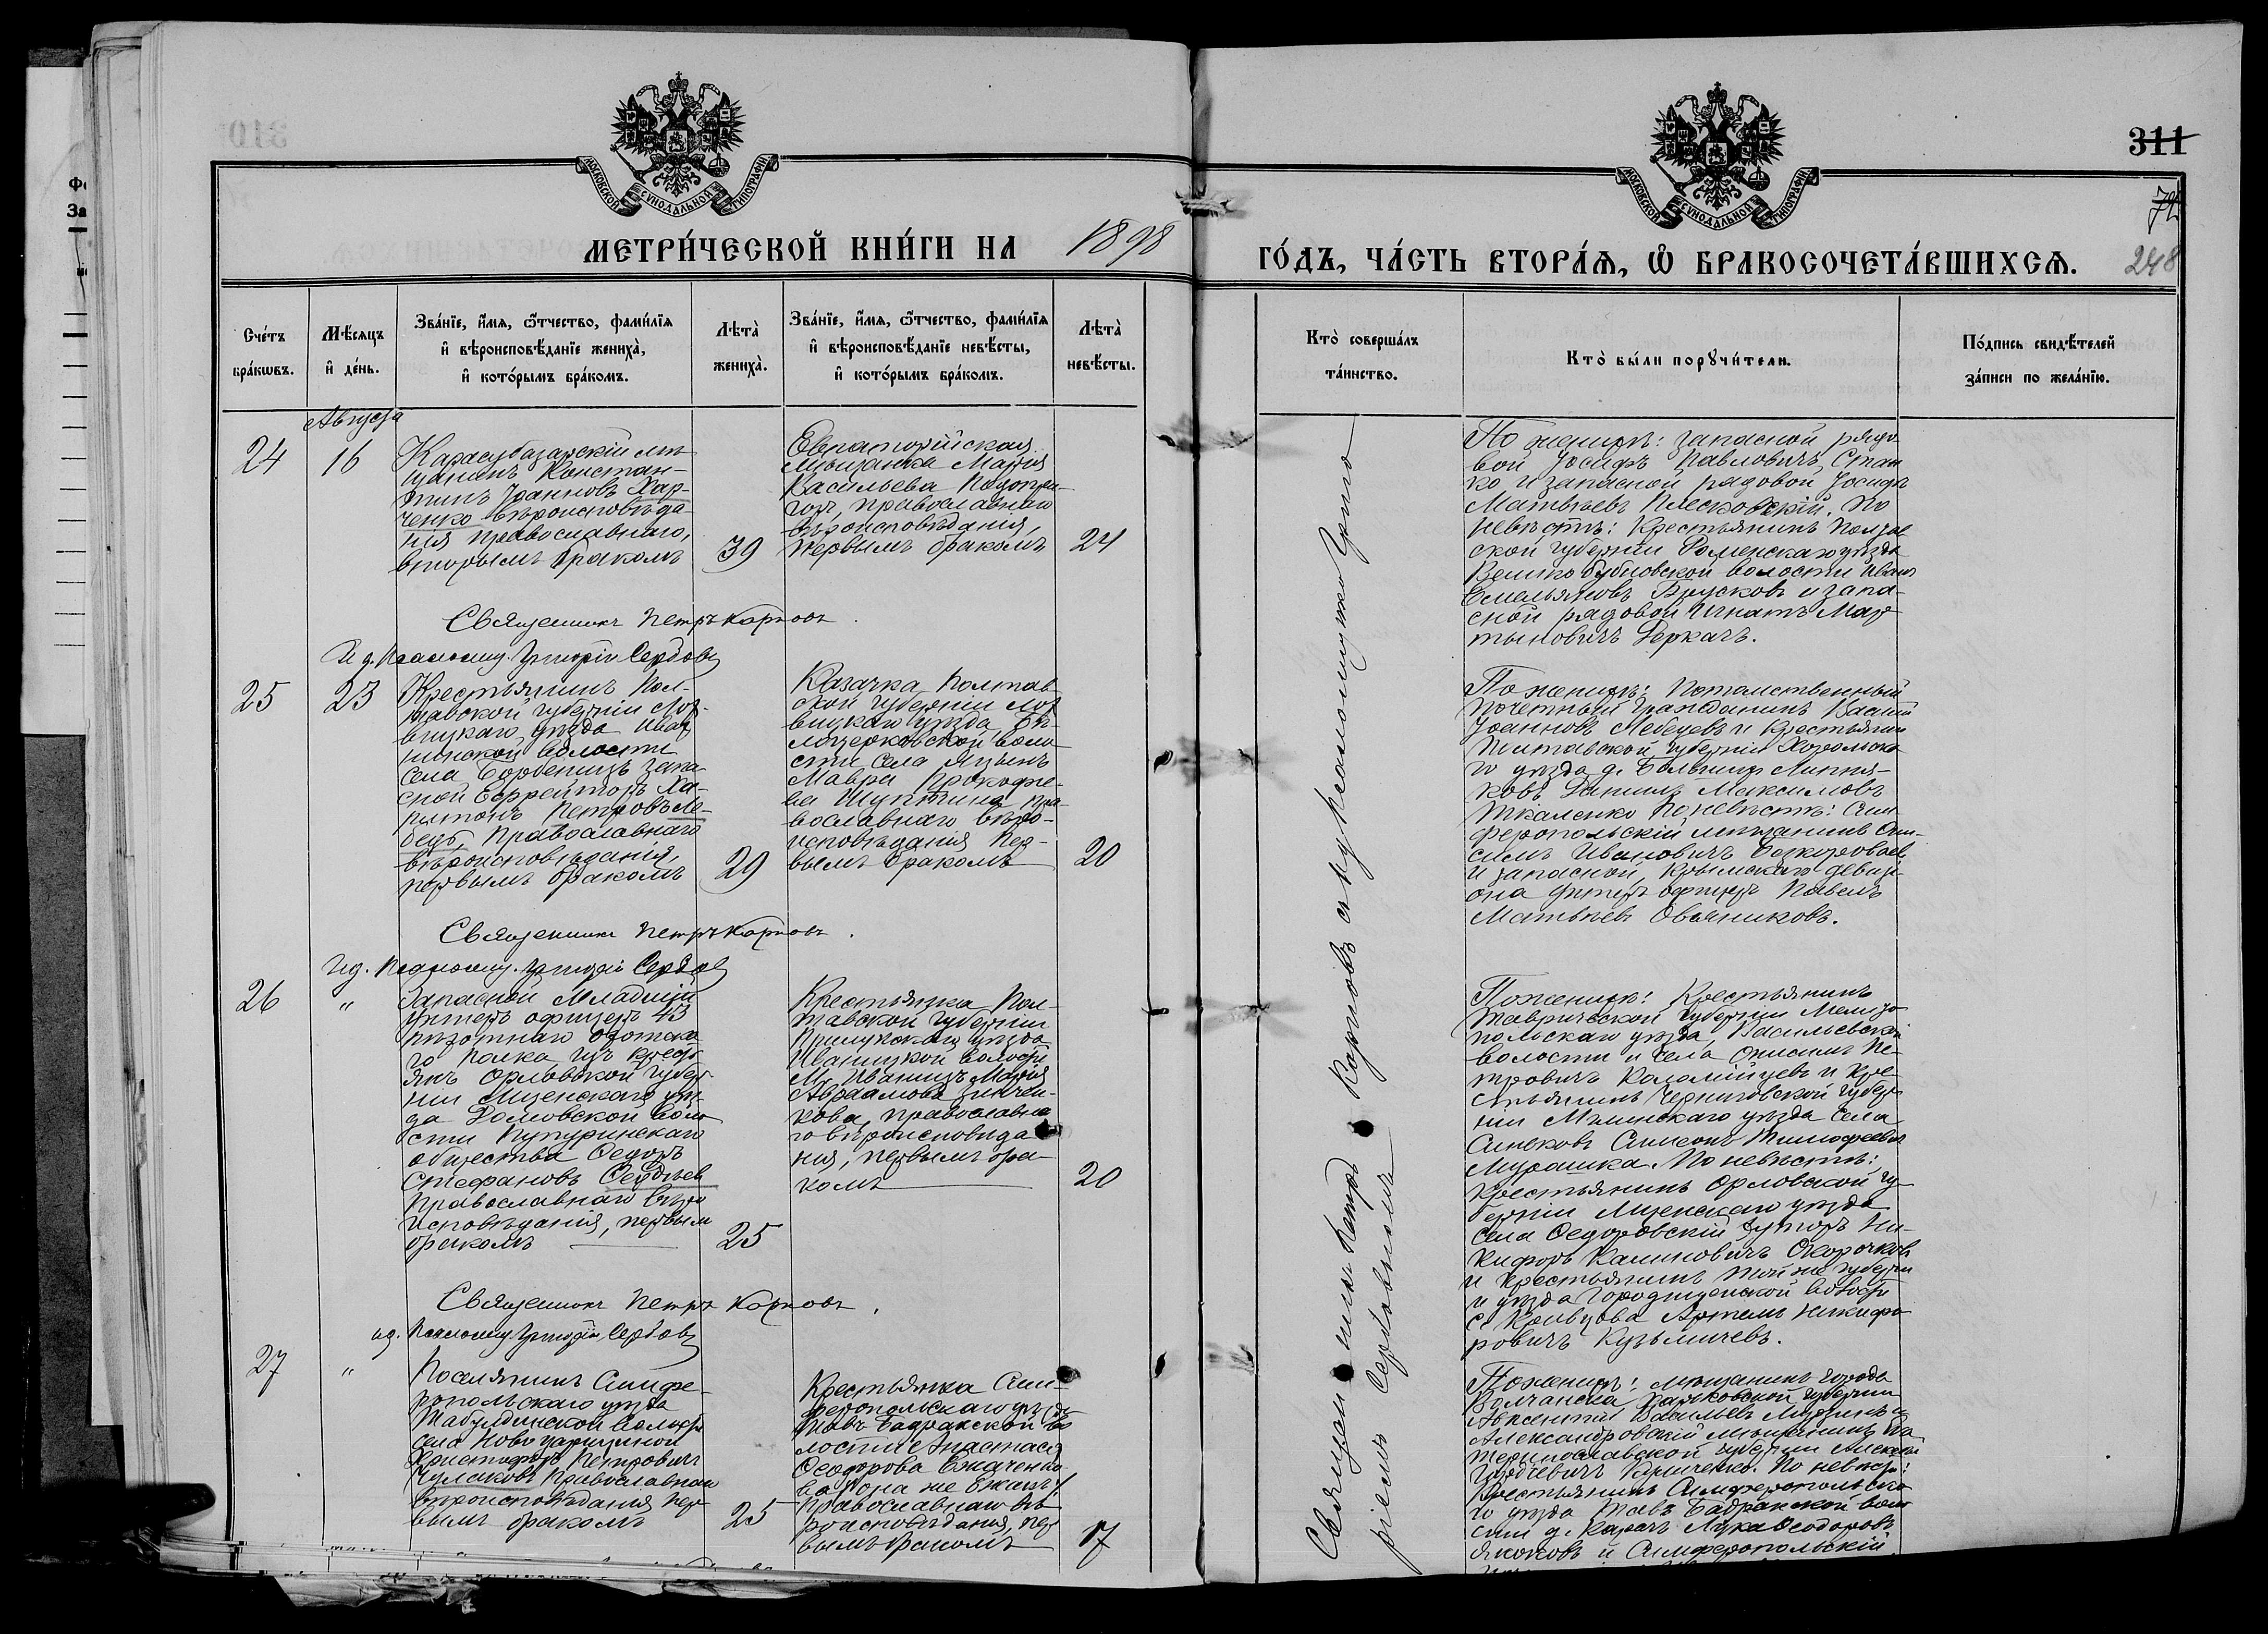 311
72
248
МОСКОВСКОЙ СѴНОДАЛЬНОЙ ТИПОГРАФІИ
МОСКОВСКОЙ СѴНОДАЛЬНОЙ ТИПОГРАФІИ
МЕТРИ́ЧЕСКОЙ КНИ́ГИ НА 1898 ГО́ДЪ, ЧА́СТЬ ВТОРА́Ѧ, Ѡ҆ БРАКОСОЧЕТА́ВШИХСѦ.
Сче́тъ
бра́кѡвъ.
Мѣ́сѧцъ
и҆ де́нь.
Зва́нїе, и҆́мѧ, ѻ҆́тчество, фами́лїѧ
и҆ вѣроисповѣ́данїе жениха̀,
и҆ кото́рымъ бра́комъ.
Лѣта̀
жениха̀.
Зва́нїе, и҆́мѧ, ѻ҆́тчество, фами́лїѧ
и҆ вѣроисповѣ́данїе невѣ́сты,
и҆ кото́рымъ бра́комъ.
Лѣта̀
невѣ́сты.
Кто̀ соверша́лъ
та́инство.
Кто̀ бы́ли порꙋчи́тели.
По́дпись свидѣ́телей
за́писи по жела́нїю.
Августа
24
16
Карасубазарскій мѣ
щанинъ Констан-
тинъ Іоанновъ Хар-
ченко вѣроисповѣда
нія православнаго,
вторымъ бракомъ
39
Евпаторійская
мѣщанка Марія
Васильева
православнаго
вѣроисповѣданія,
первымъ бракомъ
21
По женихѣ: запасной рядо
вой Іосифъ Павловичъ Стан
ко и запасной рядовой Іосифъ
Матвѣевъ Плесковскій. По
невѣстѣ: крестьянинъ Полтав
ской губерніи Роменскаго уѣзда
Велико Бубновской волости Иванъ
Емельяновъ Брусковъ и запа-
сной рядовой Игнатъ Мар
тыновичъ Деркачъ.
Священникъ Петръ Карповъ.
И. д. Псаломщ. Григорій Сербовъ
25
23
Крестьянинъ Пол-
тавской губерніи Лох-
вицкаго уѣзда Иван
нинской волости
села запа
сной Ефрейторъ Ха-
ритонъ Петровъ Ле-
бедь, православнаго
вѣроисповѣданія,
первымъ бракомъ
29
Казачка Полтав
ской губерніи Лох
вицкаго уѣзда Бѣ-
лоцерковской воло
сти села
Мавра Прокофье-
ва пра-
вославнаго вѣро-
исповѣданія пер-
вымъ бракомъ
20
По женихѣ: потомственный
почетный гражданинъ Василій
Іоанновъ Лебедевъ и крестьянинъ
Полтавской губерніи Хорольска
го уѣзда д. Большихъ Липня-
ковъ Даніилъ Максимовъ
Ткаленко по невѣстѣ: Сим
феропольскій мѣщанинъ Они-
симъ Ивановичъ
и запасной, Крымскаго дивизі
она унтеръ офицеръ Павелъ
Матвѣевъ Овчинниковъ.
Священникъ Петръ Карповъ.
И. д. Псаломщ. Григорій Сербовъ
26
"
Запасной младшій
унтеръ офицеръ 43
пѣхотнаго Охотска
го полка изъ кресть
янъ Орловской губер
ніи Мценскаго уѣз-
да воло
сти
общества Ѳедоръ
Стефановъ Сергѣевъ
православнаго вѣро
исповѣданія, первым
бракомъ
25
Крестьянка Пол-
тавской губерніи
Прилукскаго уѣзда
Иваницкой волости
м. Иваницъ Марія
Авраамова Зинчен-
кова, православна
го вѣроисповѣда
нія, первымъ бра-
комъ
20
По женихѣ: Крестьянинъ
Таврической губерніи Мелито
польскаго уѣзда, Васильевской
волости и села Онисимъ Пе-
тровичъ Коломійцевъ и кре-
стьянинъ Черниговской губер
ніи Мглинскаго уѣзда села
Симеонъ Тимофеевъ
Мурашка. По невѣстѣ:
крестьянинъ Орловской гу-
берніи Мценскаго уѣзда
села Ѳедоровскій хуторъ Ни-
кифоръ Калиновичъ Скорочковъ
и крестьянинъ той же губерніи
и уѣзда Городищенской волости
с. Кривцова Артемъ Никифо-
ровичъ Кузьмичевъ.
Священникъ Петръ Карповъ.
и д. Псаломщ. Григорій Сербовъ
27
"
Поселянинъ Симфе-
ропольскаго уѣзда
Табулдинской волости
села Ново Царицыной
Христофоръ Петровичъ
Чулаковъ православнаго
вѣроисповѣданія пер
вымъ бракомъ
25
Крестьянка Сим-
феропольскаго уѣзда
Тавъ Бадракской во
лости Анастасія
Ѳеодорова
она же
православнаго вѣ
роисповѣданія, пер
вымъ бракомъ
17
По женихѣ: мѣщанинъ города
Волчанска Харьковской губерніи
Авксентій Васильевъ и
Александровскій мѣщанинъ Ека
теринославской губерніи Алексѣй
По невѣстѣ:
крестьянинъ Симферопольска
го уѣзда Тавъ Бадракской воло
сти д. Карачъ Лука Ѳеодоровъ
и Симферопольскій
Священникъ Петръ Карповъ съ и д псаломщика Григо
ріемъ Сербовымъ